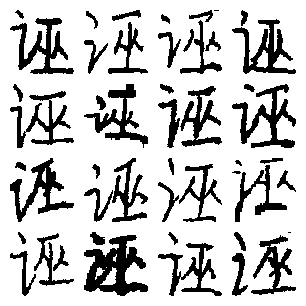 诬诬诬诬
诬诬诬诬
诬诬诬诬
诬诬诬诬